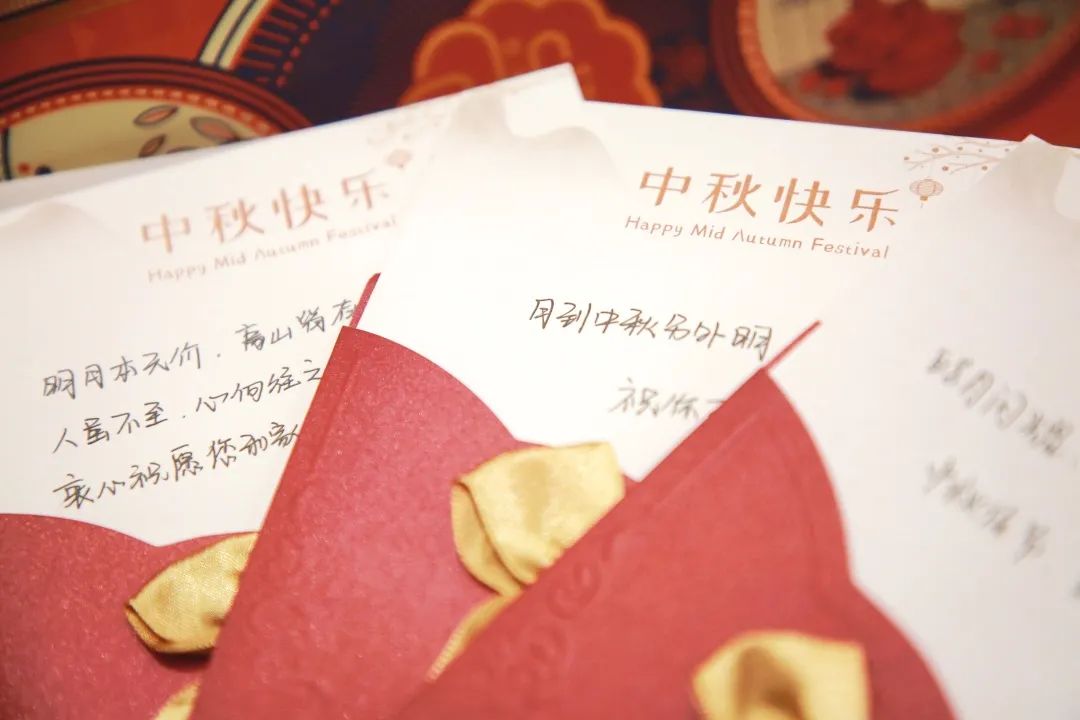 中秋快乐
Happy Mid Autumn Festival
明月本无价，高山皆有
人虽不至，心向往之
衷心祝愿您和家
中秋快乐
Happy Mid Autumn Festival
月到中秋分外明
祝你